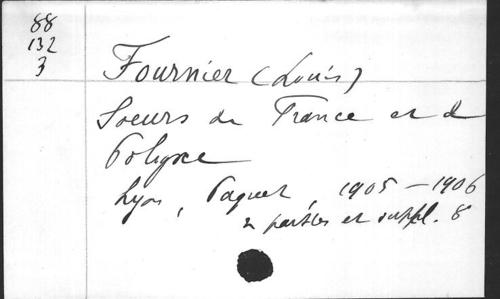 88
132
3
Fournier (Louis)
Soeurs de France et de
Lyon, Paquet, 1905-1906
2 parties et suppl. 8°